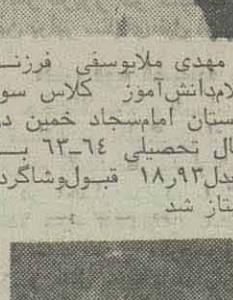 مهدی ملایوسفی فرزند
لام‌دانش‌آموز کلاس سو
ستان امام‌سجاد خمین در
ال تحصیلی ۶۴-۶۳ بـ
دل۱۸ر۹۳ قبول‌وشاگرد
تاز شد